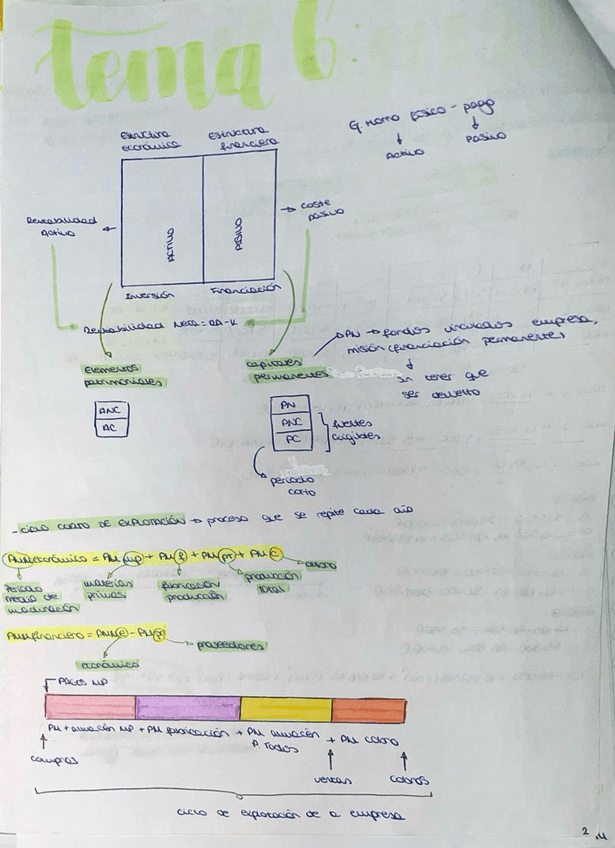 tema 6
Estructura económica
Estructura financiera
Rentabilidad Activo
ACTIVO
PASIVO
Coste pasivo
Activo
Pasivo
Inversión
Financiación
Rentabilidad Neta = RA-K
elementos patrimoniales
ANC
AC
capitales permanentes
PN → fondos vinculados empresa,
misión (financiación permanente)
sin tener que
ser devuelto
PN
ANC
PC
fuentes
exigibles
periodo
corto
- ciclo corto de explotación → proceso que se repite cada año
PMMeconómico = PM mp + PM f + PM pt + PM c
cobro
periodo medio de maduración
materias primas
fabricación producción
producción total
PMMfinanciero = PMMe - PMp
proveedores
económico
PAGOS MP
PM + almacén MP + PM fabricación + PM almacén P. Todos + PM cobro
compras
ventas
cobros
ciclo de explotación de a empresa
2